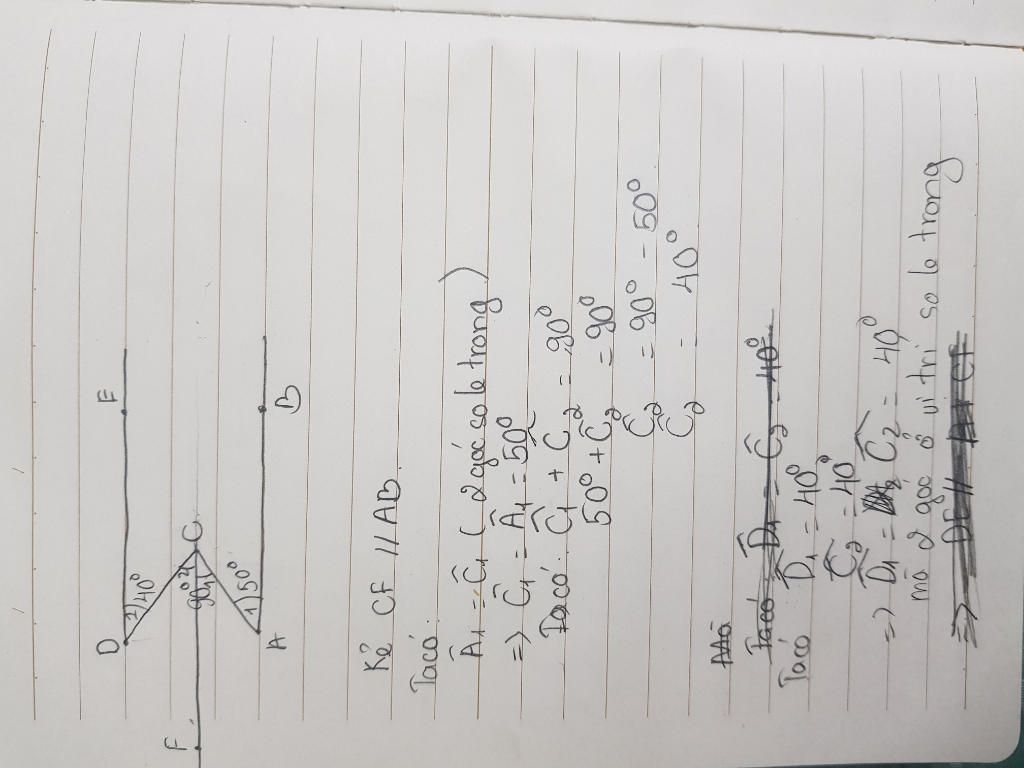 D E
2 40°
F 90° 2 1 C
1 50°
A B
Kẻ CF // AB.
Ta có:
Â₁ = Ĉ₁ ( 2 góc so le trong )
=> Ĉ₁ = Â₁ = 50°
Ta có: Ĉ₁ + Ĉ₂ = 90°
50° + Ĉ₂ = 90°
Ĉ₂ = 90° - 50°
Ĉ₂ = 40°
Mà
Ta có: D̂₁ = Ĉ₂ = 40°
Ta có D̂₁ = 40°
Ĉ₂ = 40°
=> D̂₁ = Ĉ₂ = 40°
mà 2 góc ở vị trí so le trong
=> DE //